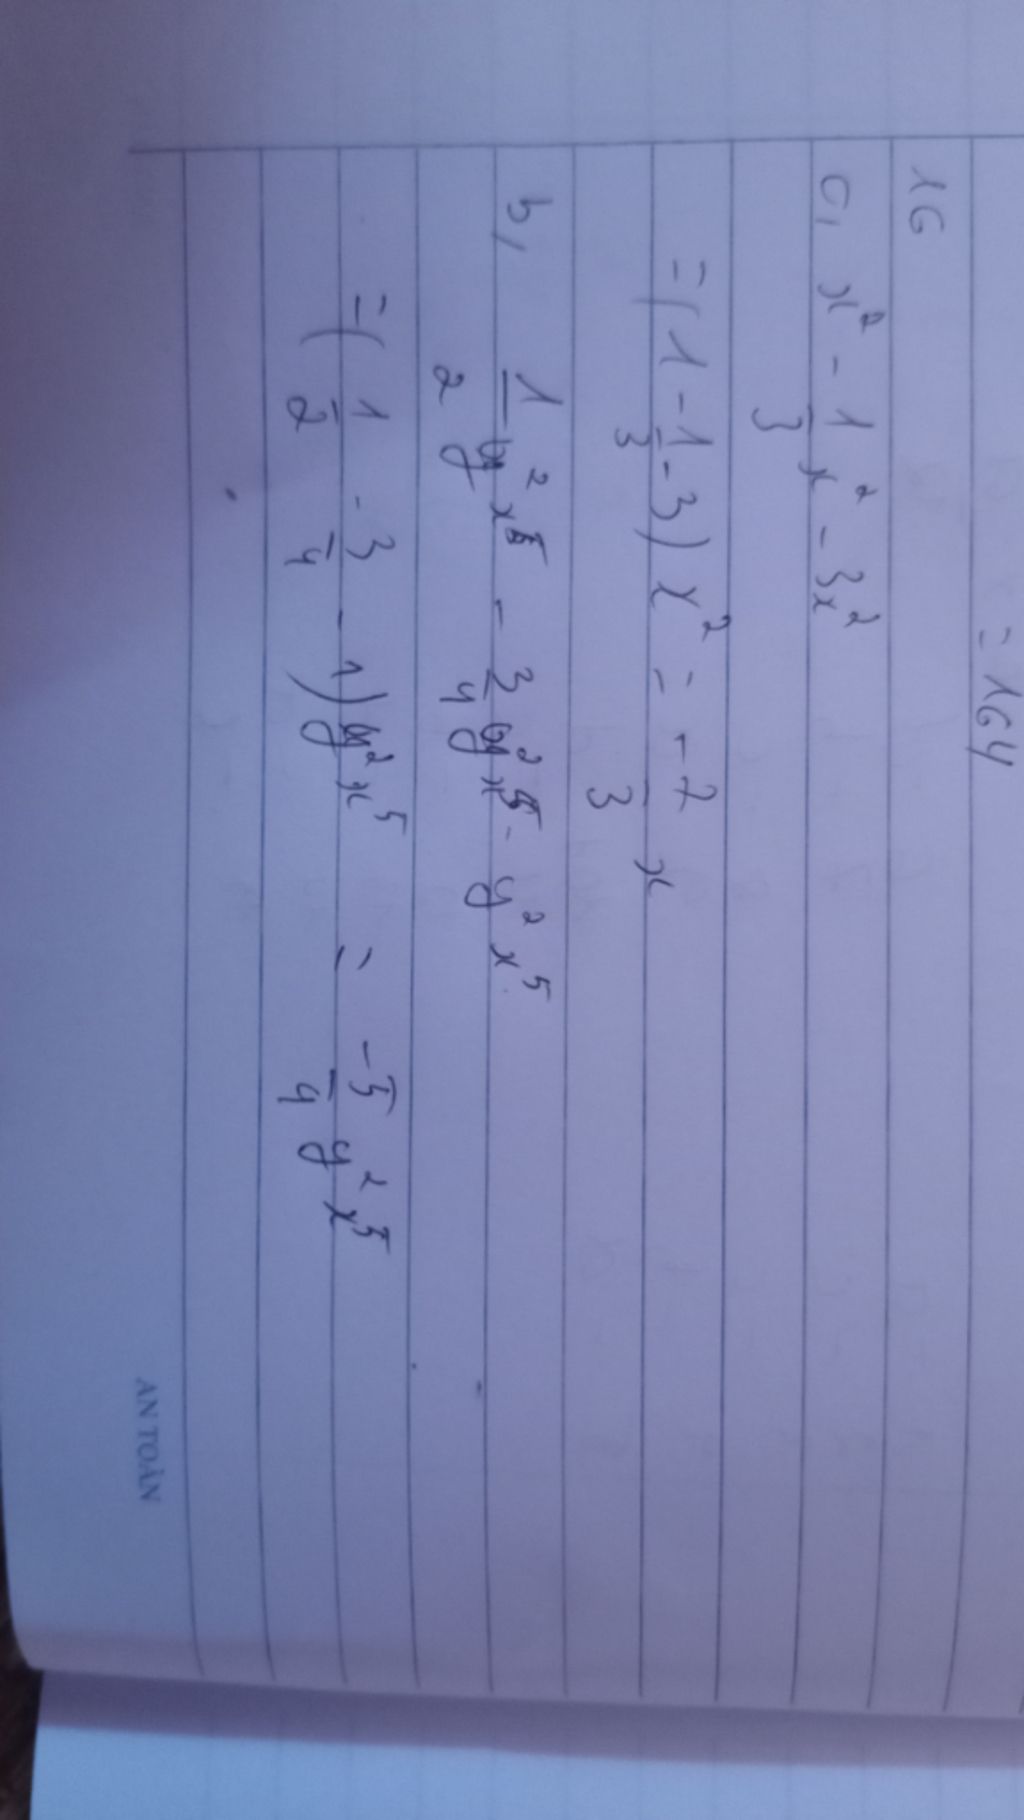 = 164
16
a, x² - 1/3 x² - 3x²
= (1 - 1/3 - 3) x² = -7/3 x
b, 1/2 y²x⁵ - 3/4 y²x⁵ - y²x⁵
= (1/2 - 3/4 - 1) y²x⁵ = -5/4 y²x⁵
AN TOÀN